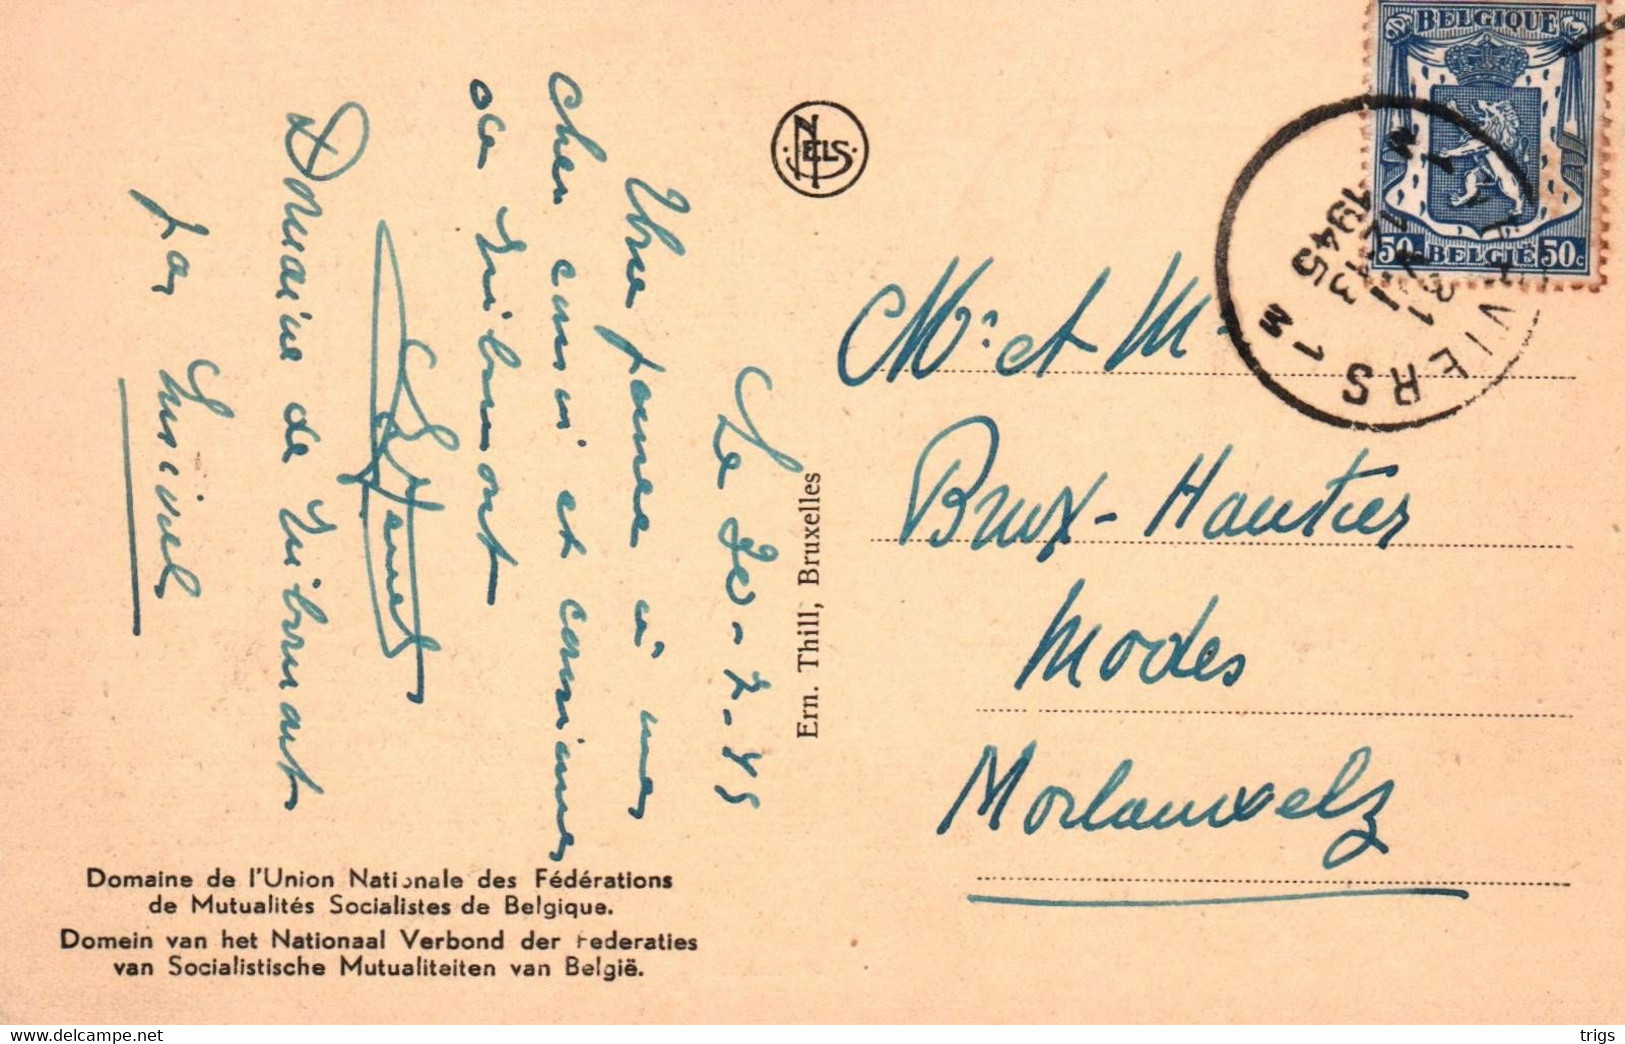 BELGIQUE
50c BELGIË 50c
VERVIERS 1
1945
NELS
Mr et Mr
Brux-Hautier
Modes
Morlanwelz
Ern. Thill, Bruxelles
Le 30-7-45
Une pensée à mes
cher cousin et cousines
de Guibmont
Domaine de Guibmont
par
Domaine de l'Union Nationale des Fédérations
de Mutualités Socialistes de Belgique.
Domein van het Nationaal Verbond der Federaties
van Socialistische Mutualiteiten van België.
delcampe.net
trigs